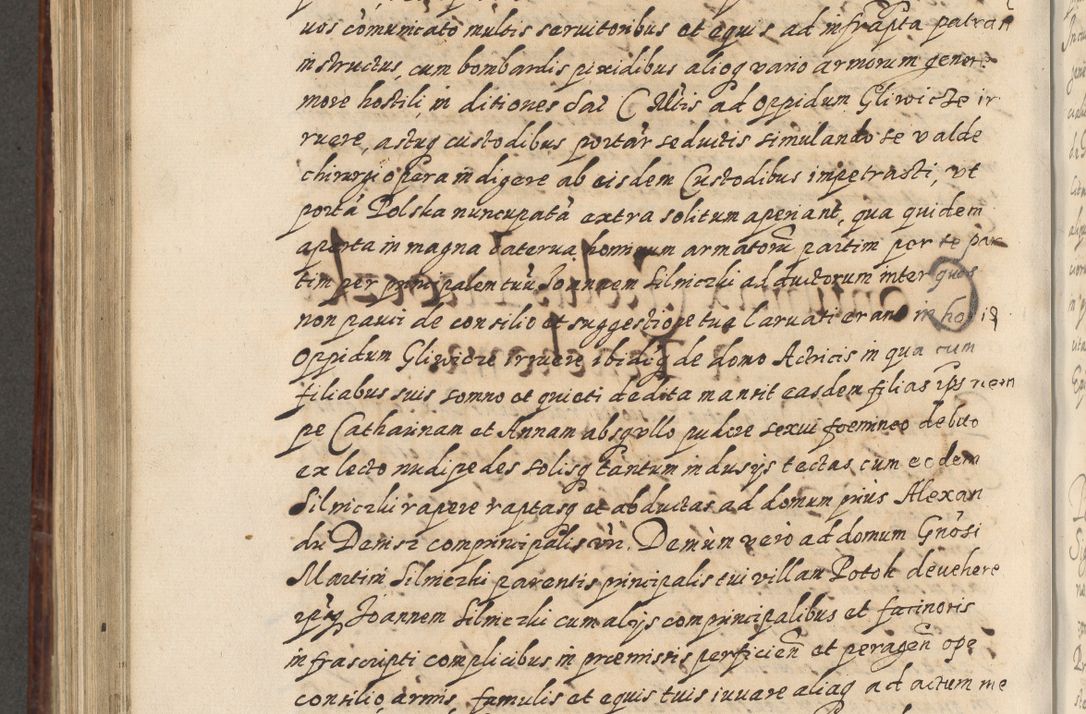 uos comunicato multis seruitoribus et equis ad infrapta patran
instructus, cum bombardis pixidibus alioq vario armorum genere
more hostili, in ditiones Sac C Mtis ad Oppidum Gliwicze ir
ruere, astuq custodibus portar seductis simulando se valde
chirurgi opera indigere ab eisdem Custodibus impetrasti, vt
portā Polska nuncupatā extra solitum aperiant, qua quidem
aperta in magna caterua hominum armatorū partim per te par
tim per principalem tuū Joannem Silniczki adductorum inter quos
non pauci de consilio et suggestione tua laruati erant in hoc id
Oppidum Gliwicze irruere ibidq de domo Actricis in qua cum
filiabus suis somno et quieti dedita mansit easdem filias ips nem
pe Catharinan et Annam absq vllo pudore sexui foemineo debito
ex lecto nudipedes solisq tantum indusijs tectas cum eodem
Silniczki rapere raptasq et abductas ad domum prius Alexan
dri Dembi comprincipalis vri. Demum vero ad domum Gnosi
Martini Silniczki parentis principalis tui villan Potok deuehere
ipsuq Joannem Silniczki cum alijs comprincipalibus et facinoris
infrascripti complicibus in praemissis perficien et peragen ope
consilio armis, famulis et equis tuis iuuare aliaq ad actum me